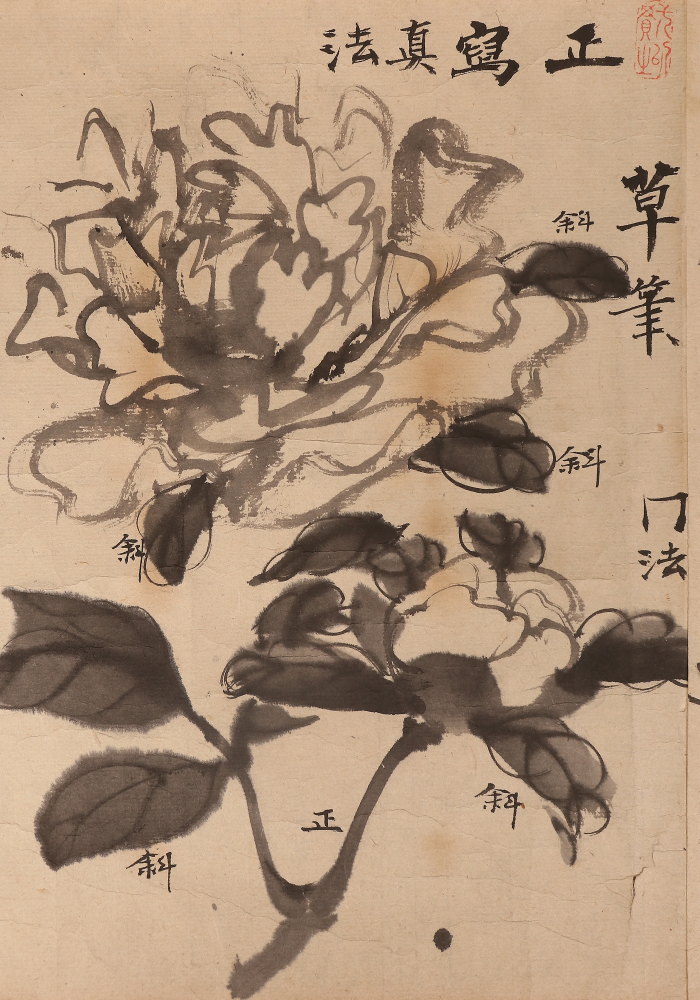 正寫真法
草筆
门法
斜
斜
斜
斜
正
斜